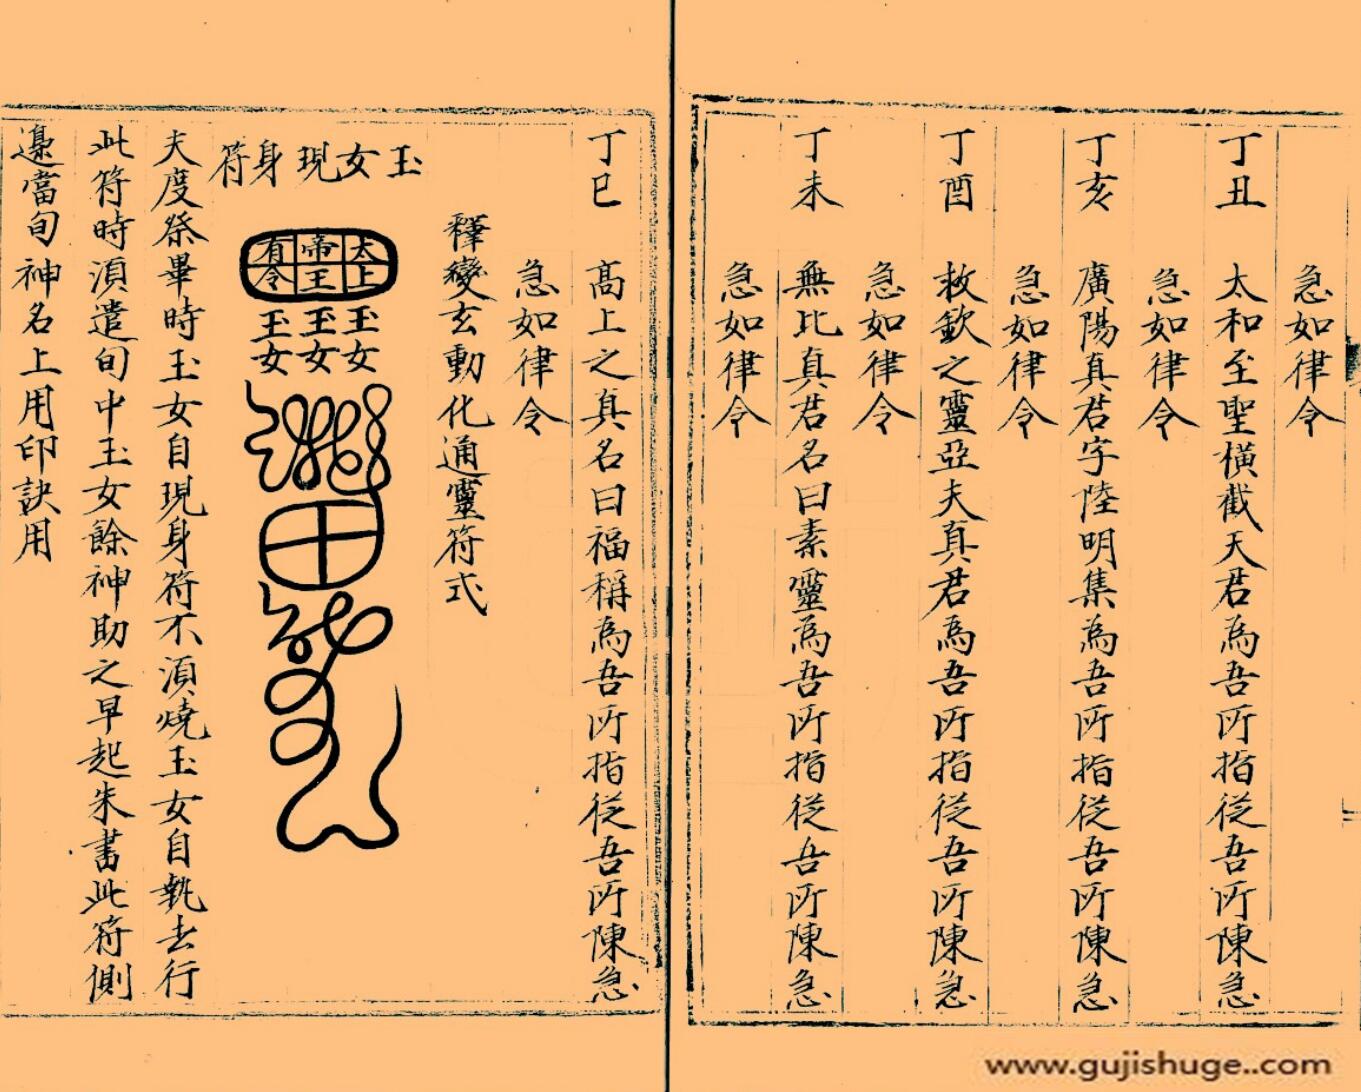 急如律令
丁丑　太和至聖橫截天君為吾所指從吾所陳急
急如律令
丁亥　廣陽真君字陸明集為吾所指從吾所陳急
急如律令
丁酉　救欽之靈亞夫真君為吾所指從吾所陳急
急如律令
丁未　無比真君名曰素靈為吾所指從吾所陳急
急如律令
丁巳　高上之真名曰福稱為吾所指從吾所陳急
急如律令
釋變玄動化通靈符式
玉女現身符
太上
帝王
有令
玉女
玉女
玉女
夫度祭畢時玉女自現身符不湏燒玉女自執去行
此符時湏遣旬中玉女餘神助之早起朱書此符側
邊當旬神名上用印訣用
www.gujishuge..com